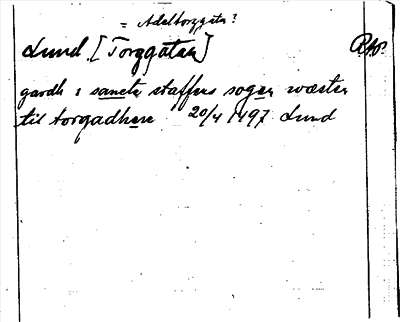 = Adeltorggata?
Lund. [Torggatan] R.ap.
gardh i sancte staffens sogen wæsten
til torgadhene 20/4 1497 Lund